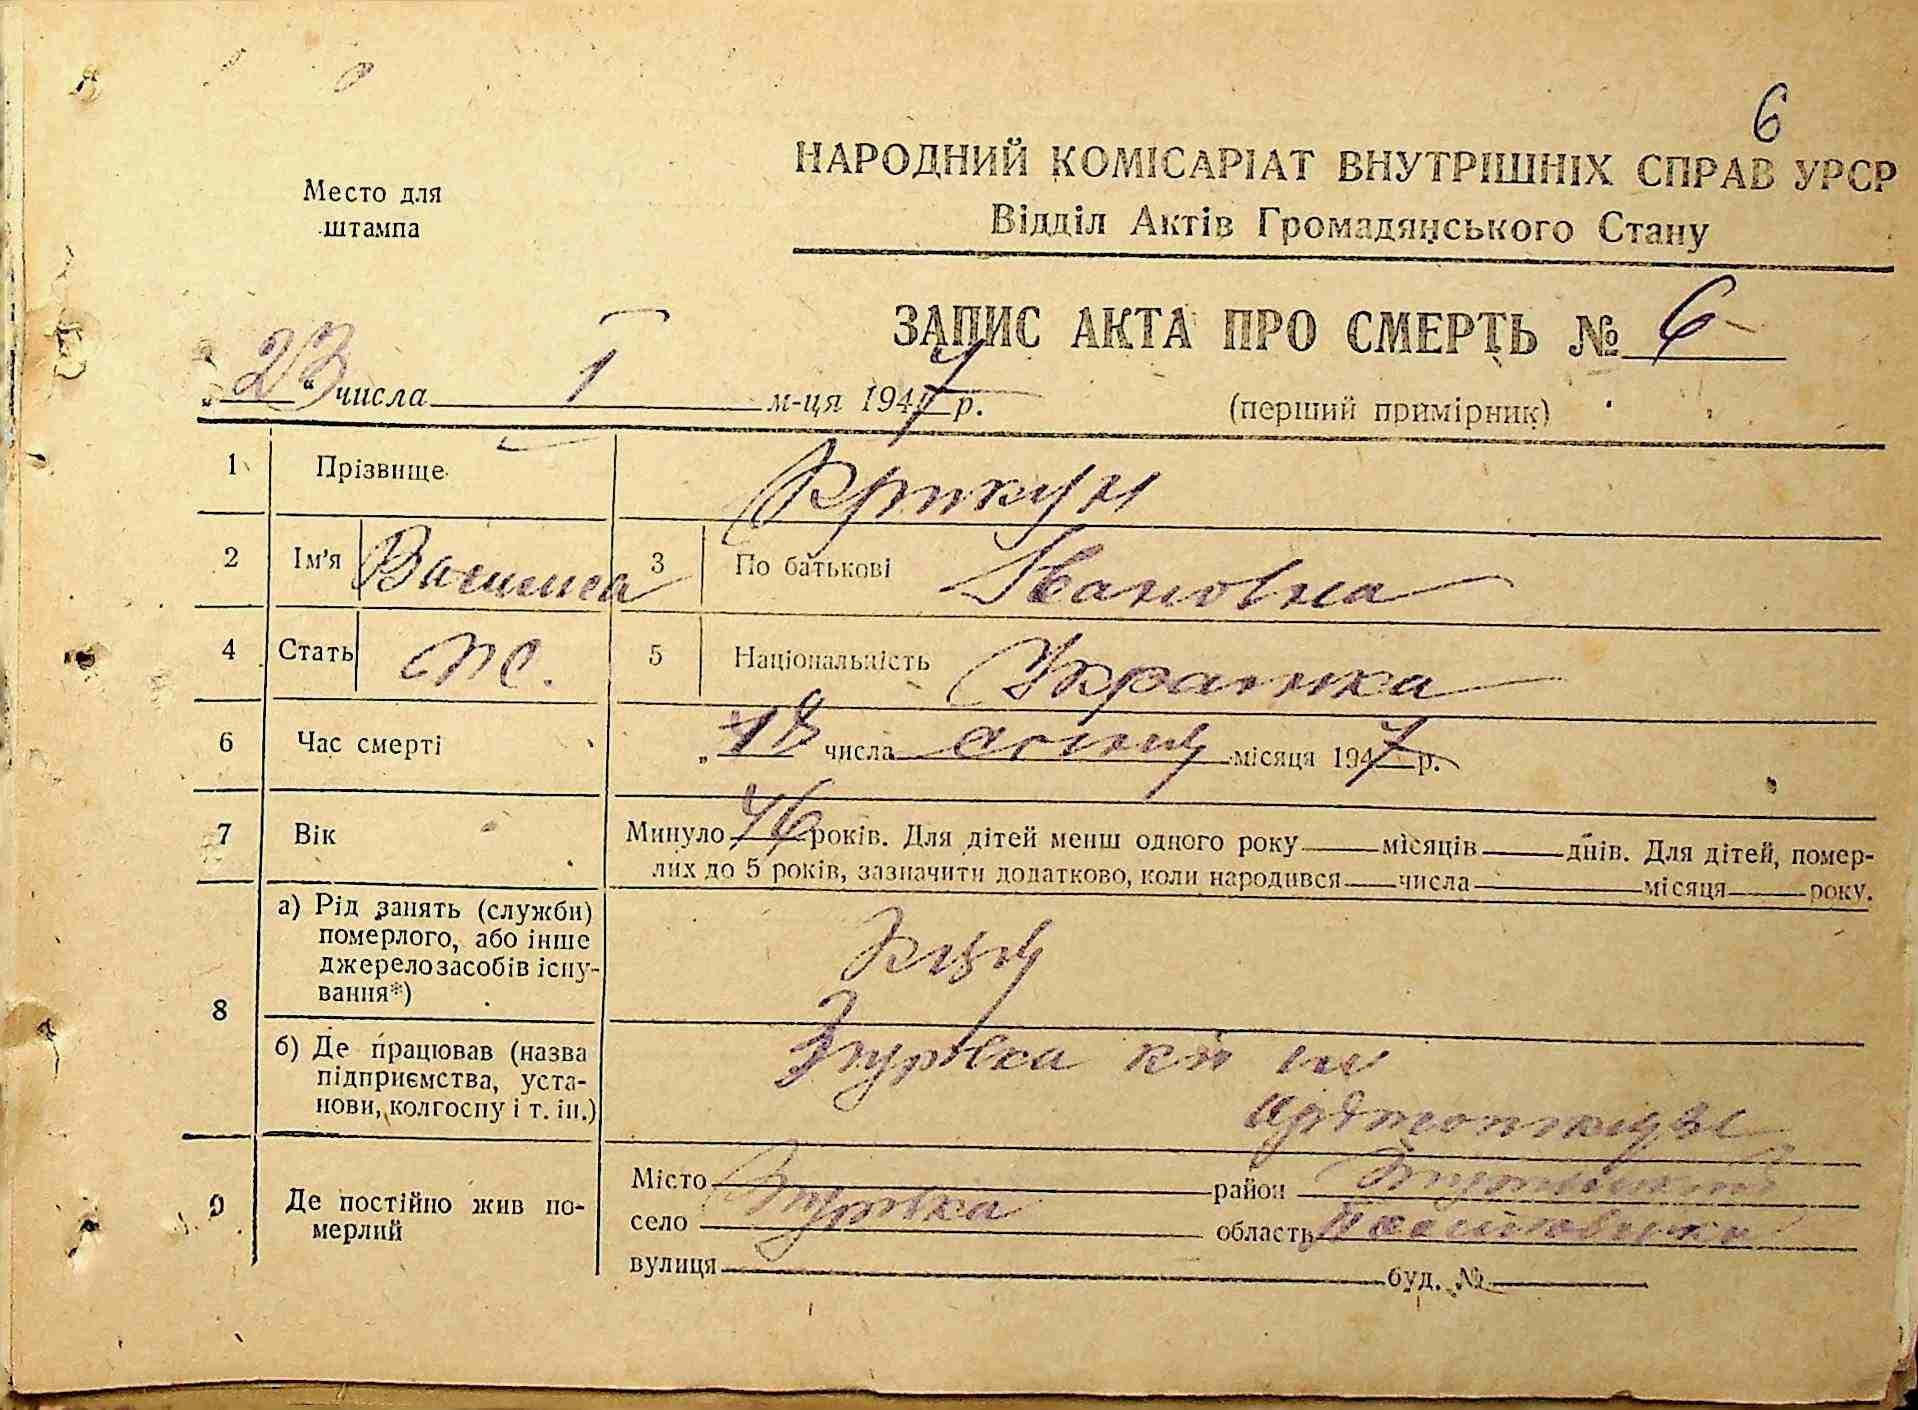 6
Место для
штампа
НАРОДНИЙ КОМІСАРІАТ ВНУТРІШНІХ СПРАВ УРСР
Відділ Актів Громадянського Стану
ЗАПИС АКТА ПРО СМЕРТЬ № 6
„23“ числа 1 м-ця 1947 р.
(перший примірник)
1 Прізвище Крикун
2 Ім'я Василиса 3 По батькові Івановна
4 Стать ж. 5 Національність Українка
6 Час смерті „18 числа січня місяця 1947 р.
7 Вік Минуло 46 років. Для дітей менш одного року місяців днів. Для дітей, помер-
лих до 5 років, зазначити додатково, коли народився числа місяця року.
8 а) Рід занять (службн)
померлого, або інше
джерело засобів існу-
вання*)
б) Де працював (назва
підприємства, уста-
нови, колгоспу і т. ін.)
Згурівка к-п ім
Орджонікидзе
9 Де постійно жив по-
мерлий
Місто район Згурівський
село Згурівка область Полтавська
вулиця буд. №